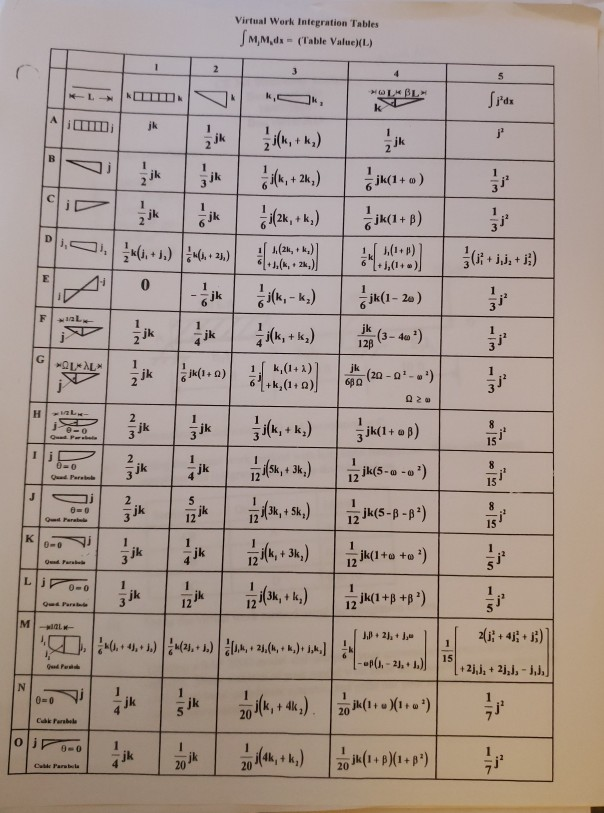 Virtual Work Integration Tables
∫MᵢMₖdx = (Table Value)(L)
1 2 3 4 5
L k k k k₁ k₂ ωL βL k ∫j²dx
A j j jk 1/2 jk 1/2 j(k₁ + k₂) 1/2 jk j²
B j 1/2 jk 1/3 jk 1/6 j(k₁ + 2k₂) 1/6 jk(1 + ω) 1/3 j²
C j 1/2 jk 1/6 jk 1/6 j(2k₁ + k₂) 1/6 jk(1 + β) 1/3 j²
D j₁ j₂ 1/2 k(j₁ + j₂) 1/6 k(j₁ + 2j₂) 1/6 [j₁(2k₁ + k₂) + j₂(k₁ + 2k₂)] 1/6 k[j₁(1 + β) + j₂(1 + ω)] 1/3 (j₁² + j₁j₂ + j₂²)
E j -j 0 -1/6 jk 1/6 j(k₁ - k₂) 1/6 jk(1 - 2ω) 1/3 j²
F 1/2L j 1/2 jk 1/4 jk 1/4 j(k₁ + k₂) jk/12β (3 - 4ω²) 1/3 j²
G ΩL λL j 1/2 jk 1/6 jk(1 + Ω) 1/6 j[k₁(1 + λ) + k₂(1 + Ω)] jk/6βΩ (2Ω - Ω² - ω²) Ω ≥ ω 1/3 j²
H 1/2 L j θ=0 Quad. Parabola 2/3 jk 1/3 jk 1/3 j(k₁ + k₂) 1/3 jk(1 + ωβ) 8/15 j²
I j θ=0 Quad. Parabola 2/3 jk 1/4 jk 1/12 j(5k₁ + 3k₂) 1/12 jk(5 - ω - ω²) 8/15 j²
J j θ=0 Quad. Parabola 2/3 jk 5/12 jk 1/12 j(3k₁ + 5k₂) 1/12 jk(5 - β - β²) 8/15 j²
K θ=0 j Quad. Parabola 1/3 jk 1/4 jk 1/12 j(k₁ + 3k₂) 1/12 jk(1 + ω + ω²) 1/5 j²
L j θ=0 Quad. Parabola 1/3 jk 1/12 jk 1/12 j(3k₁ + k₂) 1/12 jk(1 + β + β²) 1/5 j²
M 1/2L j₁ j₂ j₃ Quad. Parabola 1/6 k(j₁ + 4j₂ + j₃) 1/6 k(2j₂ + j₃) 1/6 [j₁k₁ + 2j₂(k₁ + k₂) + j₃k₂] 1/6 k[j₁β + 2j₂ + j₃ω - ωβ(j₁ - 2j₂ + j₃)] 1/15 [2(j₁² + 4j₂² + j₃²) + 2j₁j₂ + 2j₂j₃ - j₁j₃]
N θ=0 j Cubic Parabola 1/4 jk 1/5 jk 1/20 j(k₁ + 4k₂) 1/20 jk(1 + ω)(1 + ω²) 1/7 j²
O j θ=0 Cubic Parabola 1/4 jk 1/20 jk 1/20 j(4k₁ + k₂) 1/20 jk(1 + β)(1 + β²) 1/7 j²